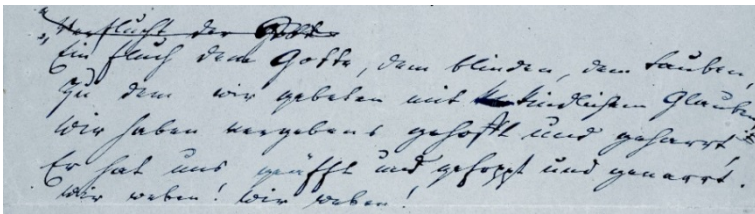 "Verflucht der Gott
„Ein Fluch dem Gotte, dem blinden, dem tauben,
Zu dem wir gebeten mit kindlichem Glauben
Wir haben vergebens gehofft und geharrt,
Er hat uns geäfft und gefoppt und genarrt.
Wir weben! Wir weben!